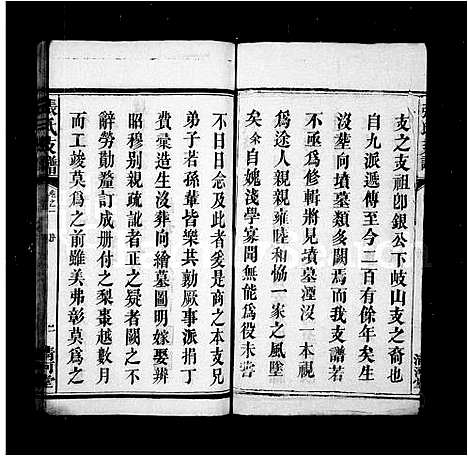 支之支祖卽銀公下岐山支之裔也
自九派遞傳至今二百有餘年矣生
沒葬向墳墓類多闕焉而我支譜若
不亟爲修輯將見墳墓湮沒一本視
爲途人親親雍睦和協一家之風墜
矣余自媿淺學寡聞無能爲役未嘗
不日日念及此者爰是商之本支兄
弟子若孫輩皆樂共勷厥事派捐丁
費彙造生沒葬向繪墓圖明嫁娶辨
昭穆別親疏訛者正之疑者闕之不
辭勞勩釐訂成册付之梨棗越數月
而工竣莫爲之前雖美弗彰莫爲之
張氏支譜
卷之一
清河堂